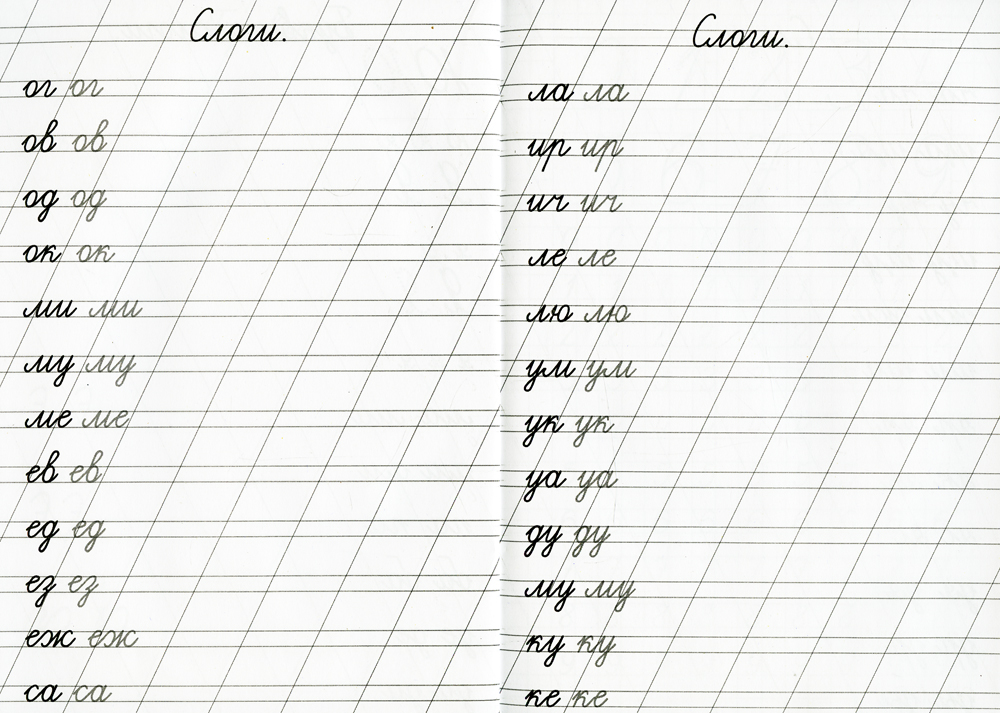 Слоги.
ог ог
ов ов
од од
ок ок
ми ми
му му
ме ме
ев ев
ед ед
ез ез
еж еж
са са
Слоги.
ла ла
ир ир
ич ич
ле ле
лю лю
ум ум
ук ук
уа уа
ду ду
му му
ку ку
ке ке